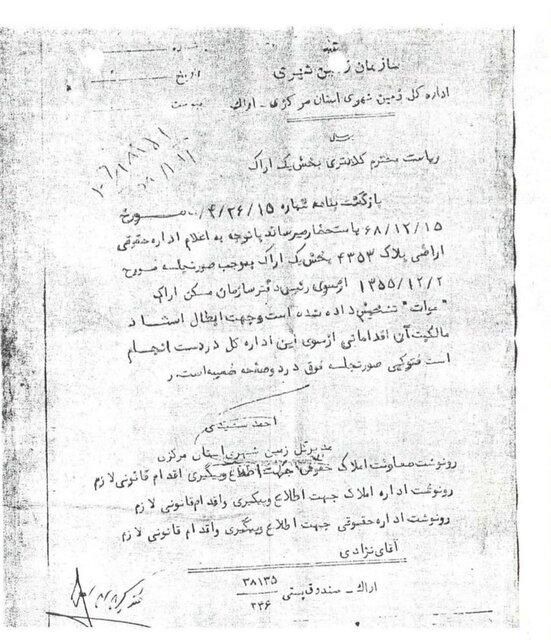 شماره
بسمه
سازمان زمین شهری
تاریخ
اداره کل زمین شهری استان مرکزی - اراک
پیوست
ریاست محترم کلانتری بخش یک اراک
بازگشت بنامه شماره ۴/۲۶/۱۵ مورخ
۶۸/۱۲/۱۵ باستحضار میرساند باتوجه به اعلام اداره حقوقی
اراضی پلاک ۴۳۵۳ بخش یک اراک بموجب صورتجلسه مورخ
۱۳۵۵/۱۲/۲ ازسوی رئیس دفتر سازمان مسکن اراک
"موات" تشخیص داده شده است وجهت ابطال اسناد
مالکیت آن اقداماتی ازسوی این اداره کل در دست انجام
است فتوکپی صورتجلسه فوق در دوصفحه ضمیمه است. ر
احمد سنندی
مدیرکل زمین شهری استان مرکزی
رونوشت معاونت املاک حقوقی جهت اطلاع وپیگیری اقدام قانونی لازم
رونوشت اداره املاک جهت اطلاع وپیگیری واقدام قانونی لازم
رونوشت اداره حقوقی جهت اطلاع وپیگیری واقدام قانونی لازم
آقای نژادی
اراک - صندوق پستی ۳۸۱۳۵
۲۳۶